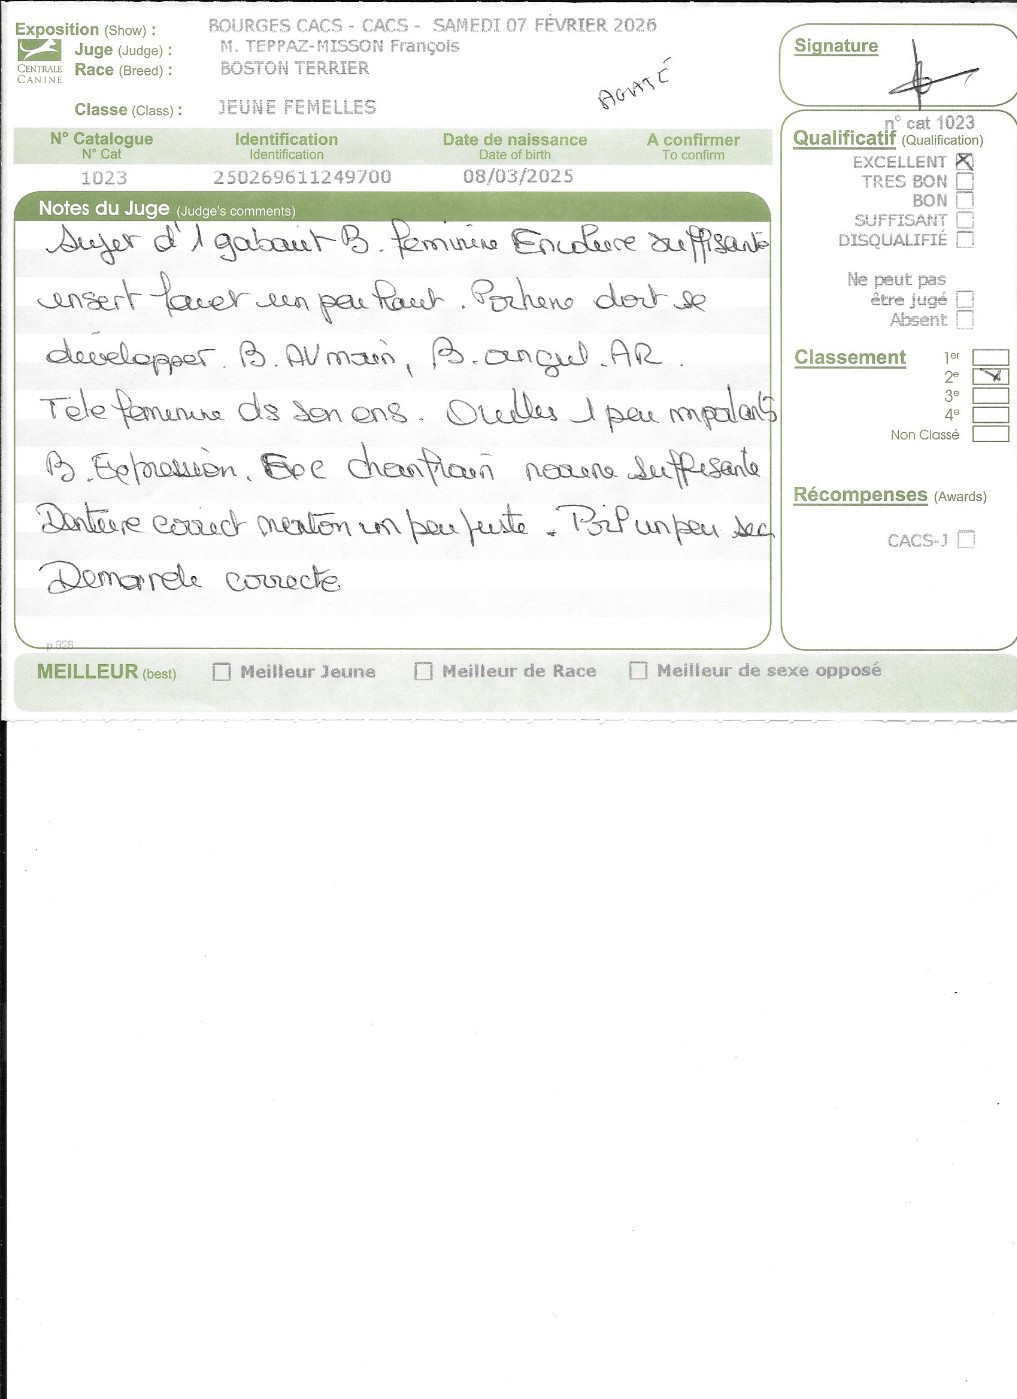 Exposition (Show) : BOURGES CACS - CACS - SAMEDI 07 FÉVRIER 2026
Juge (Judge) : M. TEPPAZ-MISSON François
CENTRALE CANINE
Race (Breed) : BOSTON TERRIER
Classe (Class) : JEUNE FEMELLES
AGATÉ
Signature
N° Catalogue Identification Date de naissance A confirmer
N° Cat Identification Date of birth To confirm
1023 250269611249700 08/03/2025
Notes du Juge (Judge's comments)
Sujet d'1 gabarit B. féminine Encolure suffisante
insert fouet un peu haut. Poitrine doit se
développer. B. AV main, B. angul. AR.
Tete feminine ds son ens. Oreilles 1 peu importants
B. Expression. chanfrein suffisante
Denture correct menton un peu juste. Poil un peu sec
Demarche correcte
p 926
n° cat 1023
Qualificatif (Qualification)
EXCELLENT
TRES BON
BON
SUFFISANT
DISQUALIFIÉ
Ne peut pas
être jugé
Absent
Classement 1er
2e
3e
4e
Non Classé
Récompenses (Awards)
CACS-J
MEILLEUR (best) Meilleur Jeune Meilleur de Race Meilleur de sexe opposé